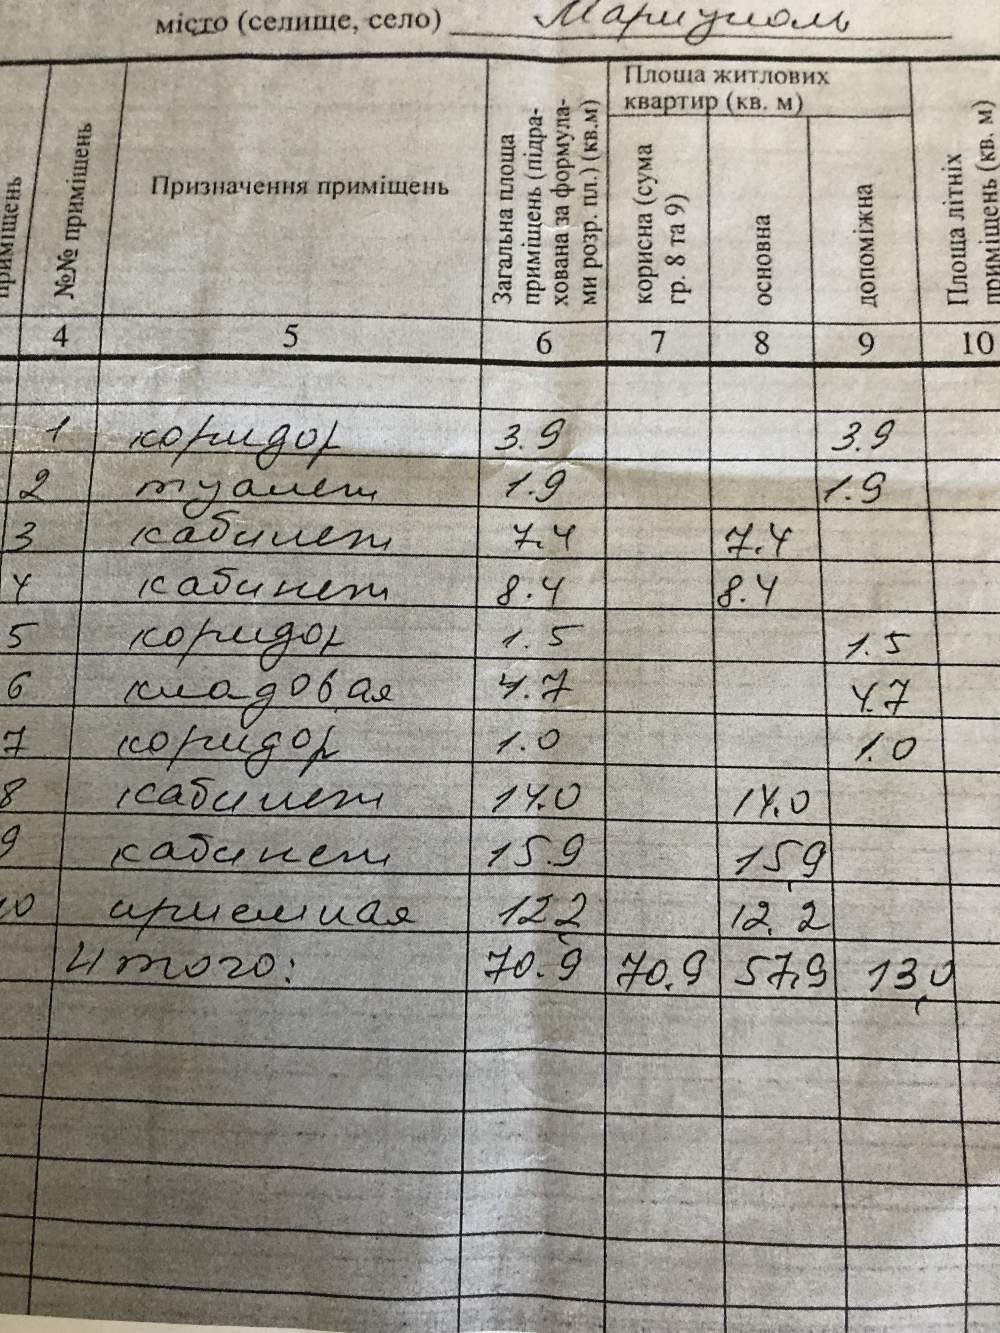 місто (селище, село) Мариуполь
приміщень
№№ приміщень
Призначення приміщень
Загальна площа
приміщень (підра-
хована за формула-
ми розр. пл.) (кв.м)
Площа житлових
квартир (кв. м)
корисна (сума
гр. 8 та 9)
основна
допоміжна
Площа літніх
приміщень (кв. м)
4 5 6 7 8 9 10
1 коридор 3.9 3.9
2 туалет 1.9 1.9
3 кабинет 7.4 7.4
4 кабинет 8.4 8.4
5 коридор 1.5 1.5
6 кладовая 4.7 4.7
7 коридор 1.0 1.0
8 кабинет 14.0 14.0
9 кабинет 15.9 15,9
10 приемная 12,2 12.2
Итого: 70.9 70.9 57,9 13,0